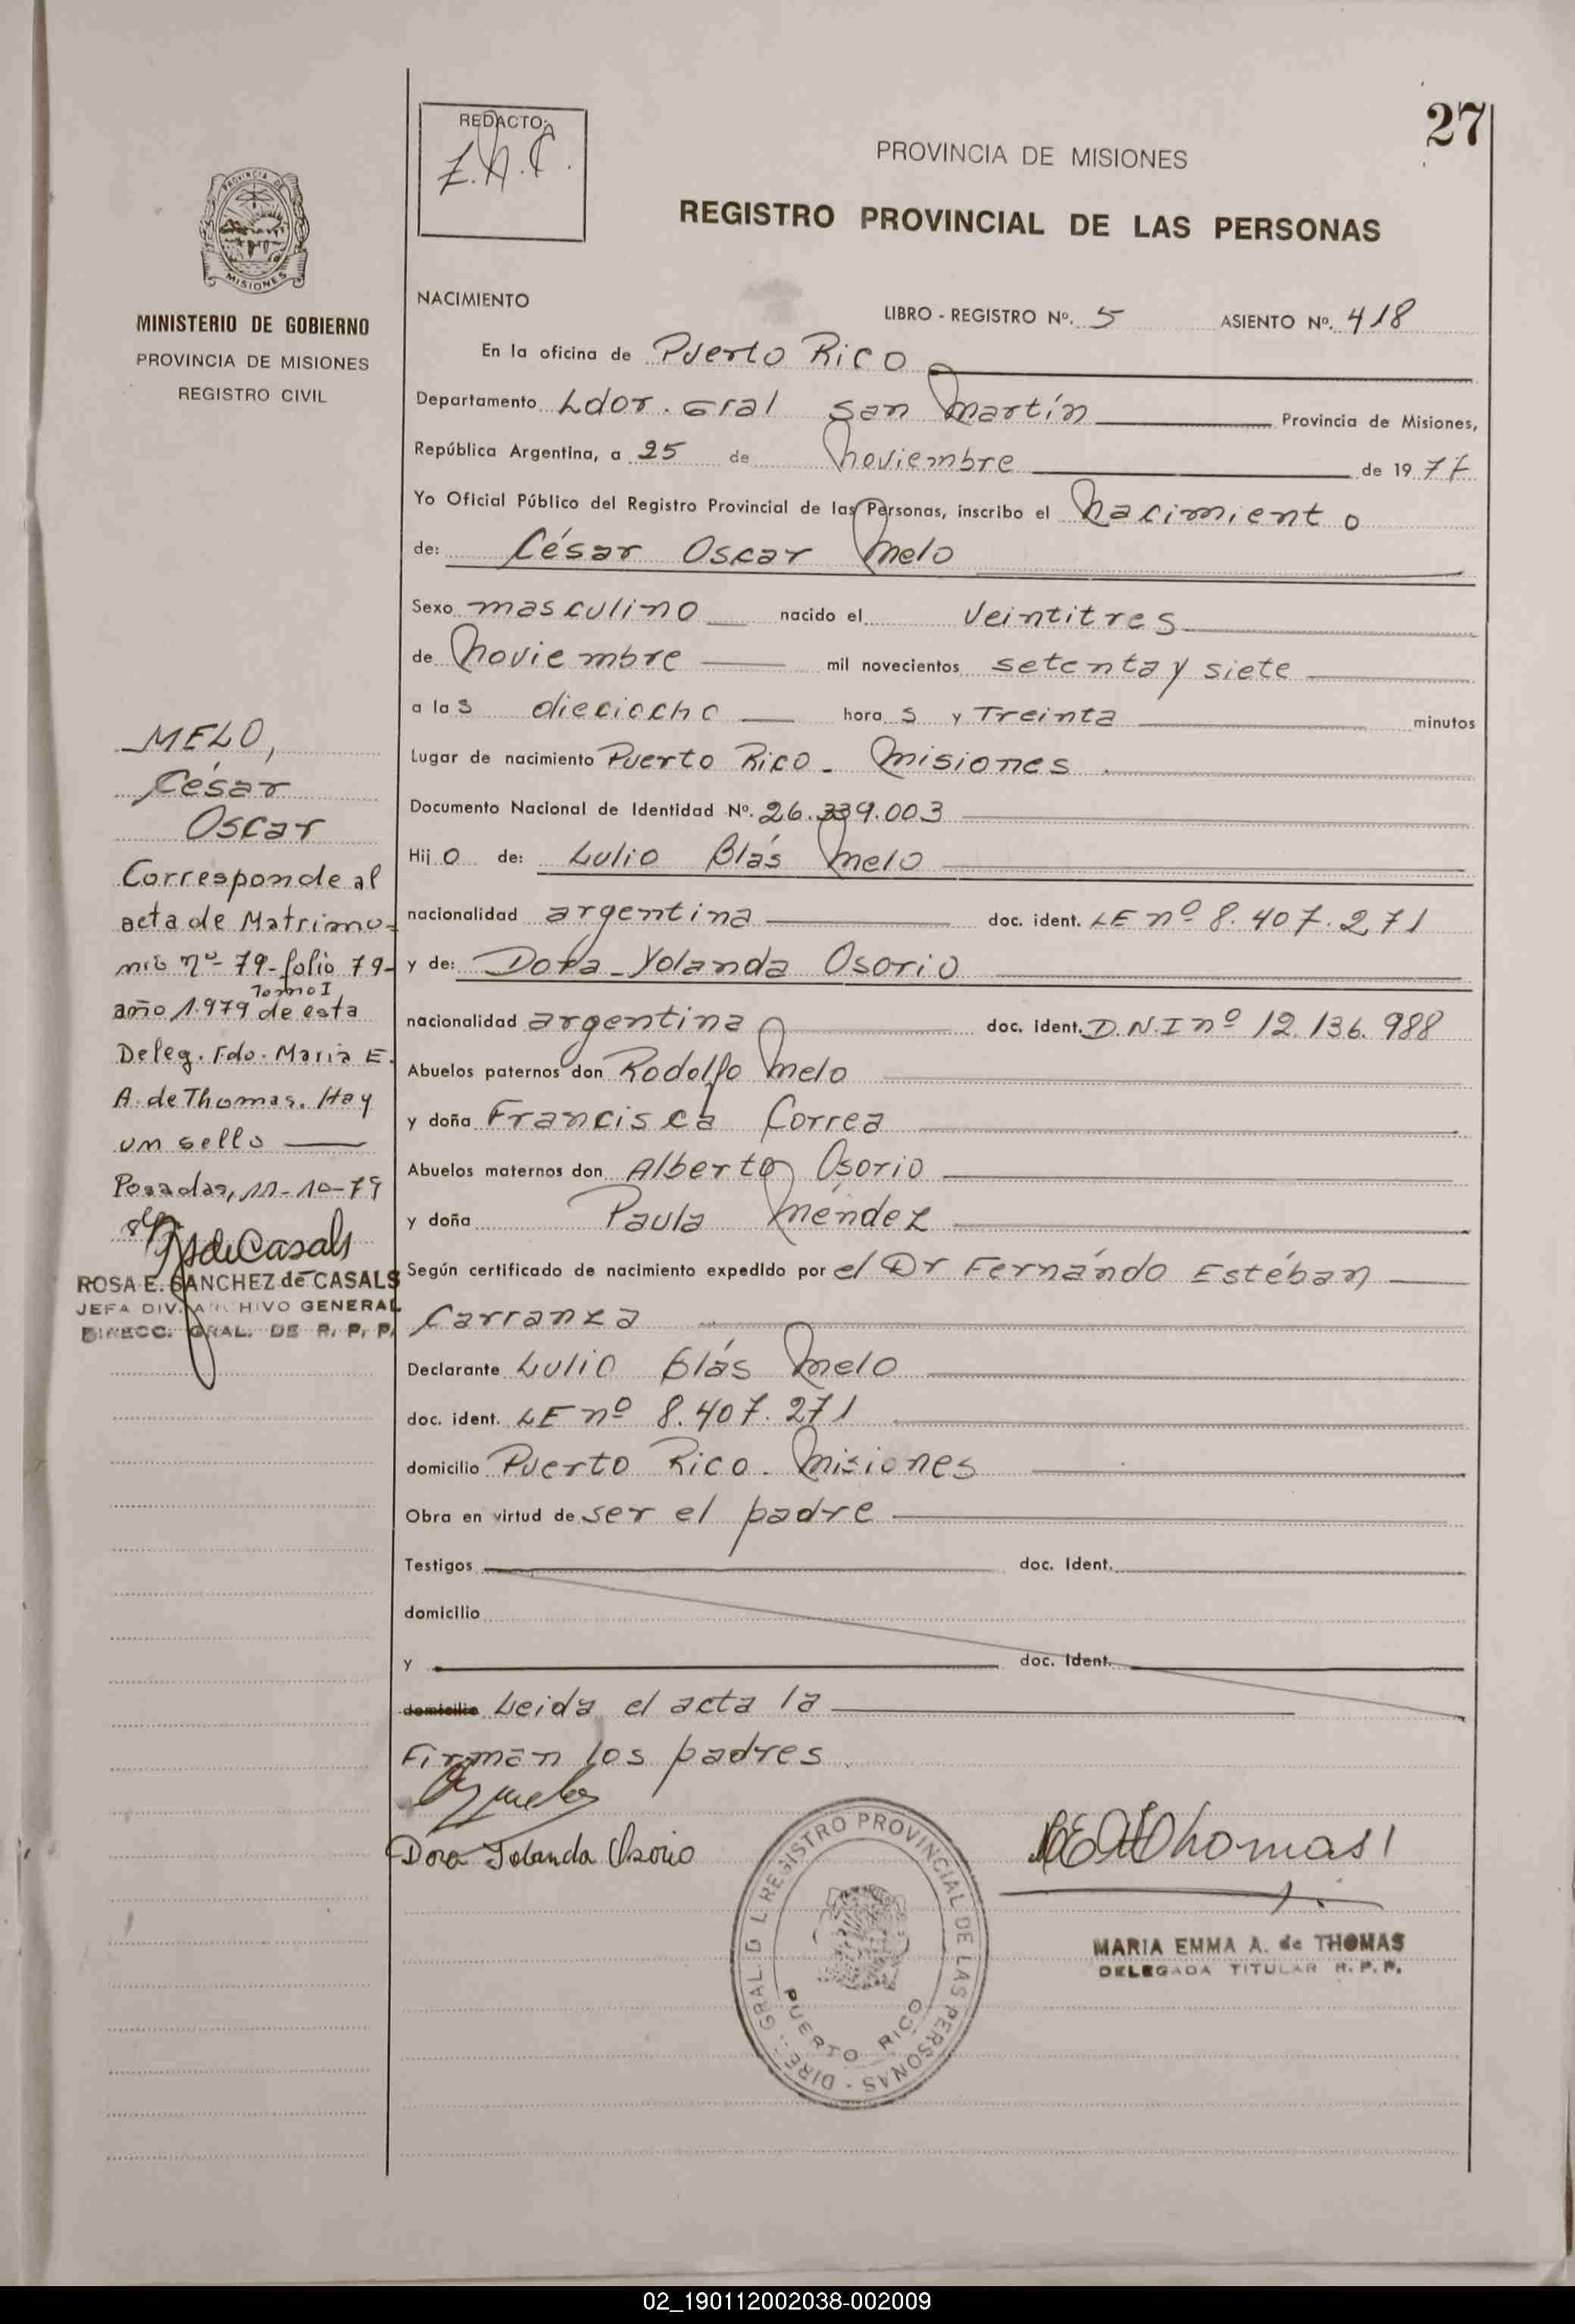 27
REDACTO:
Z.A.C.
PROVINCIA DE MISIONES
REGISTRO PROVINCIAL DE LAS PERSONAS
PROVINCIA DE
MISIONES
MINISTERIO DE GOBIERNO
PROVINCIA DE MISIONES
REGISTRO CIVIL
NACIMIENTO
LIBRO - REGISTRO Nº. 5 ASIENTO Nº. 418
En la oficina de Puerto Rico
Departamento Ldor. Gral San Martín Provincia de Misiones,
República Argentina, a 25 de Noviembre de 1977
Yo Oficial Público del Registro Provincial de las Personas, inscribo el Nacimiento
de: César Oscar Melo
Sexo masculino nacido el Veintitres
de Noviembre mil novecientos setenta y siete
a las dieciocho horas y Treinta minutos
Lugar de nacimiento Puerto Rico - Misiones.
Documento Nacional de Identidad Nº. 26.339.003
Hijo de: Lulio Blás Melo
nacionalidad argentina doc. ident. LE nº 8.407.271
y de: Dora Yolanda Osorio
nacionalidad argentina doc. ident. D.N.I nº 12.136.988
Abuelos paternos don Rodolfo Melo
y doña Francisca Correa
Abuelos maternos don Alberto Osorio
y doña Paula Méndez
Según certificado de nacimiento expedido por el Dr Fernándo Estéban
Carranza
Declarante Lulio Blás Melo
doc. ident. LE nº 8.407.271
domicilio Puerto Rico. Misiones
Obra en virtud de ser el padre
Testigos doc. Ident.
domicilio
y doc. Ident.
domicilio Leida el acta la
Firman los padres.
Dora Yolanda Osorio
MEAdeThomas
MARIA EMMA A. de THOMAS
DELEGADA TITULAR R.P.P.
DIRE. GRAL. D L REGISTRO PROVINCIAL DE LAS PERSONAS -
PUERTO RICO
MELO,
César
Oscar
Corresponde al
acta de Matrimo-
nio nº- 79-folio 79-
Tomo I
año 1.979 de esta
Deleg. Fdo. Maria E.
A. de Thomas. Hay
un sello
Posadas, 11-10-79
RSdeCasals
ROSA E. SANCHEZ de CASALS
JEFA DIV. ARCHIVO GENERAL
DIRECC. GRAL. DE R. P. P.
02_190112002038-002009